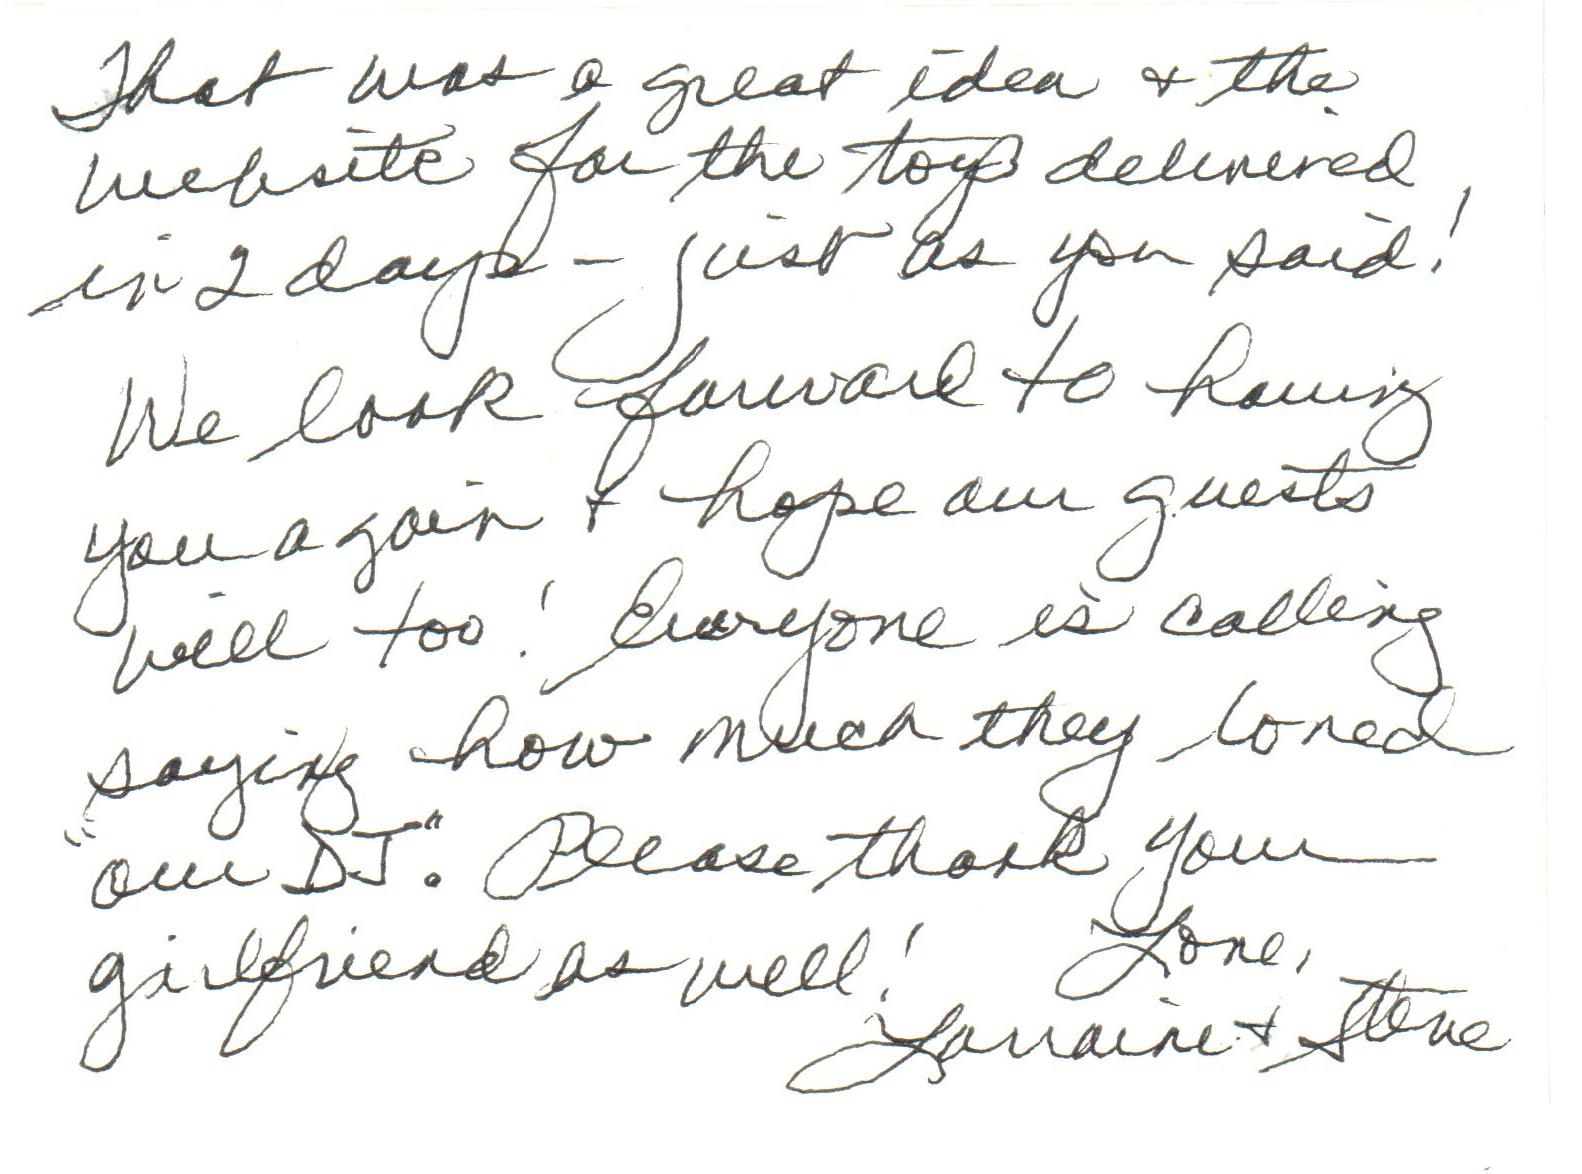 That was a great idea & the
website for the toys delivered
in 2 days - just as you said!
We look forward to having
you again & hope our guests
will too! Everyone is calling
saying how much they loved
"our DJ". Please thank your
girlfriend as well! Love,
Lorraine & Steve